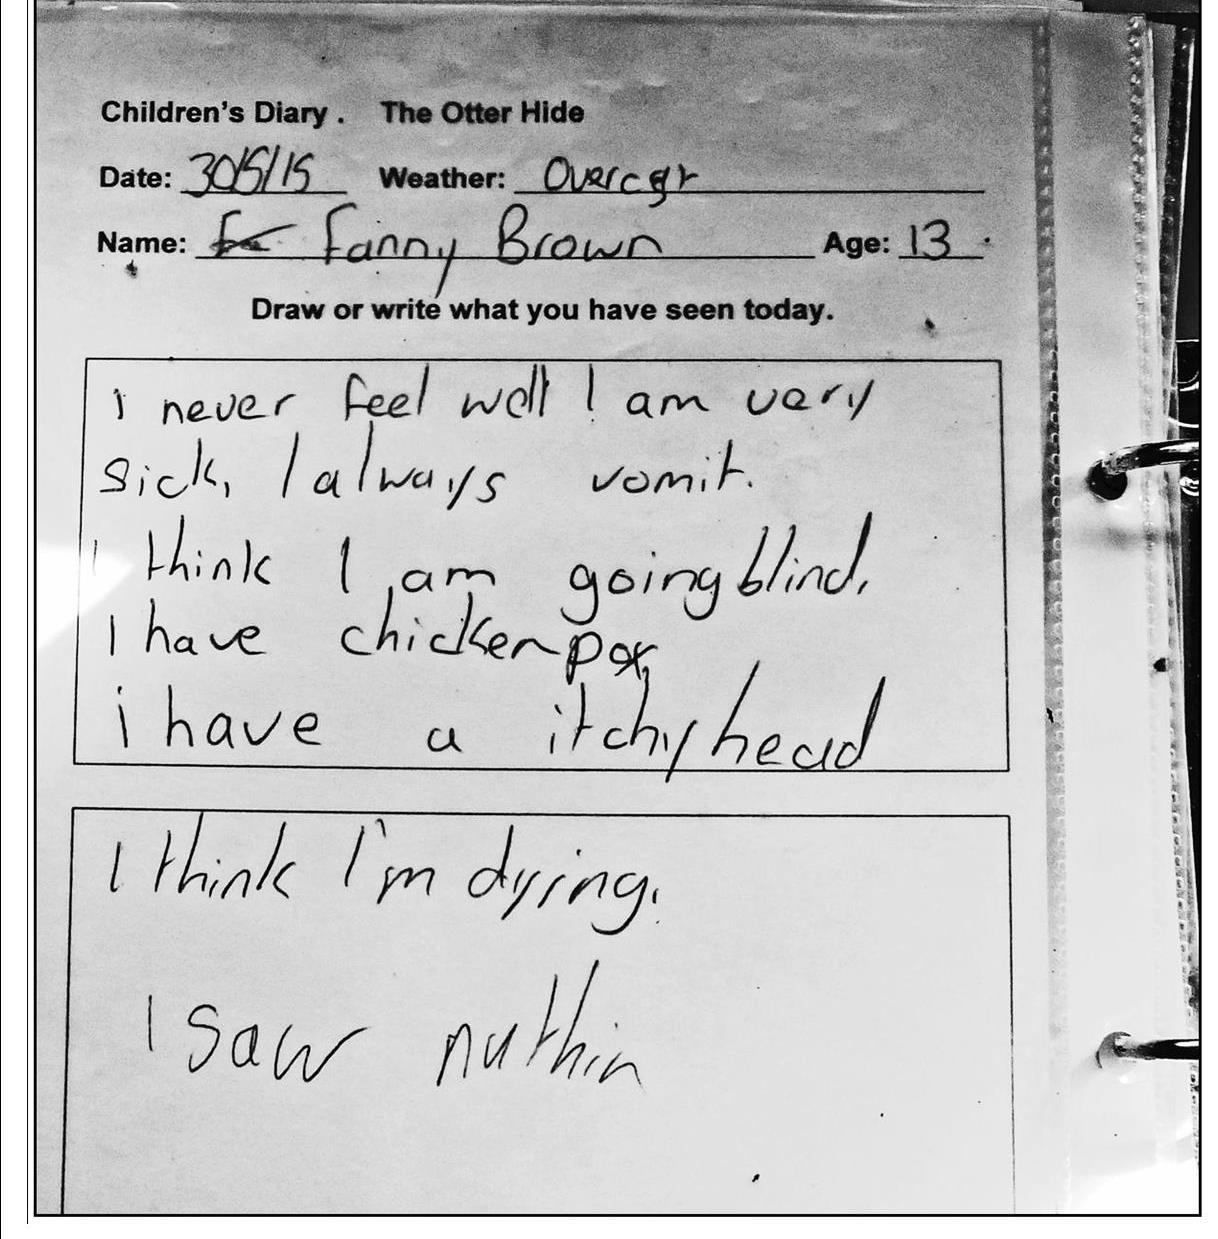 Children's Diary . The Otter Hide
Date: 30/5/15 Weather: Overcast
Name: Fanny Brown Age: 13
Draw or write what you have seen today.
i never feel well I am very
sick, I always vomit.
I think I am going blind,
I have chickenpox,
i have a itchy head
I think I'm dying.
I saw nuthin